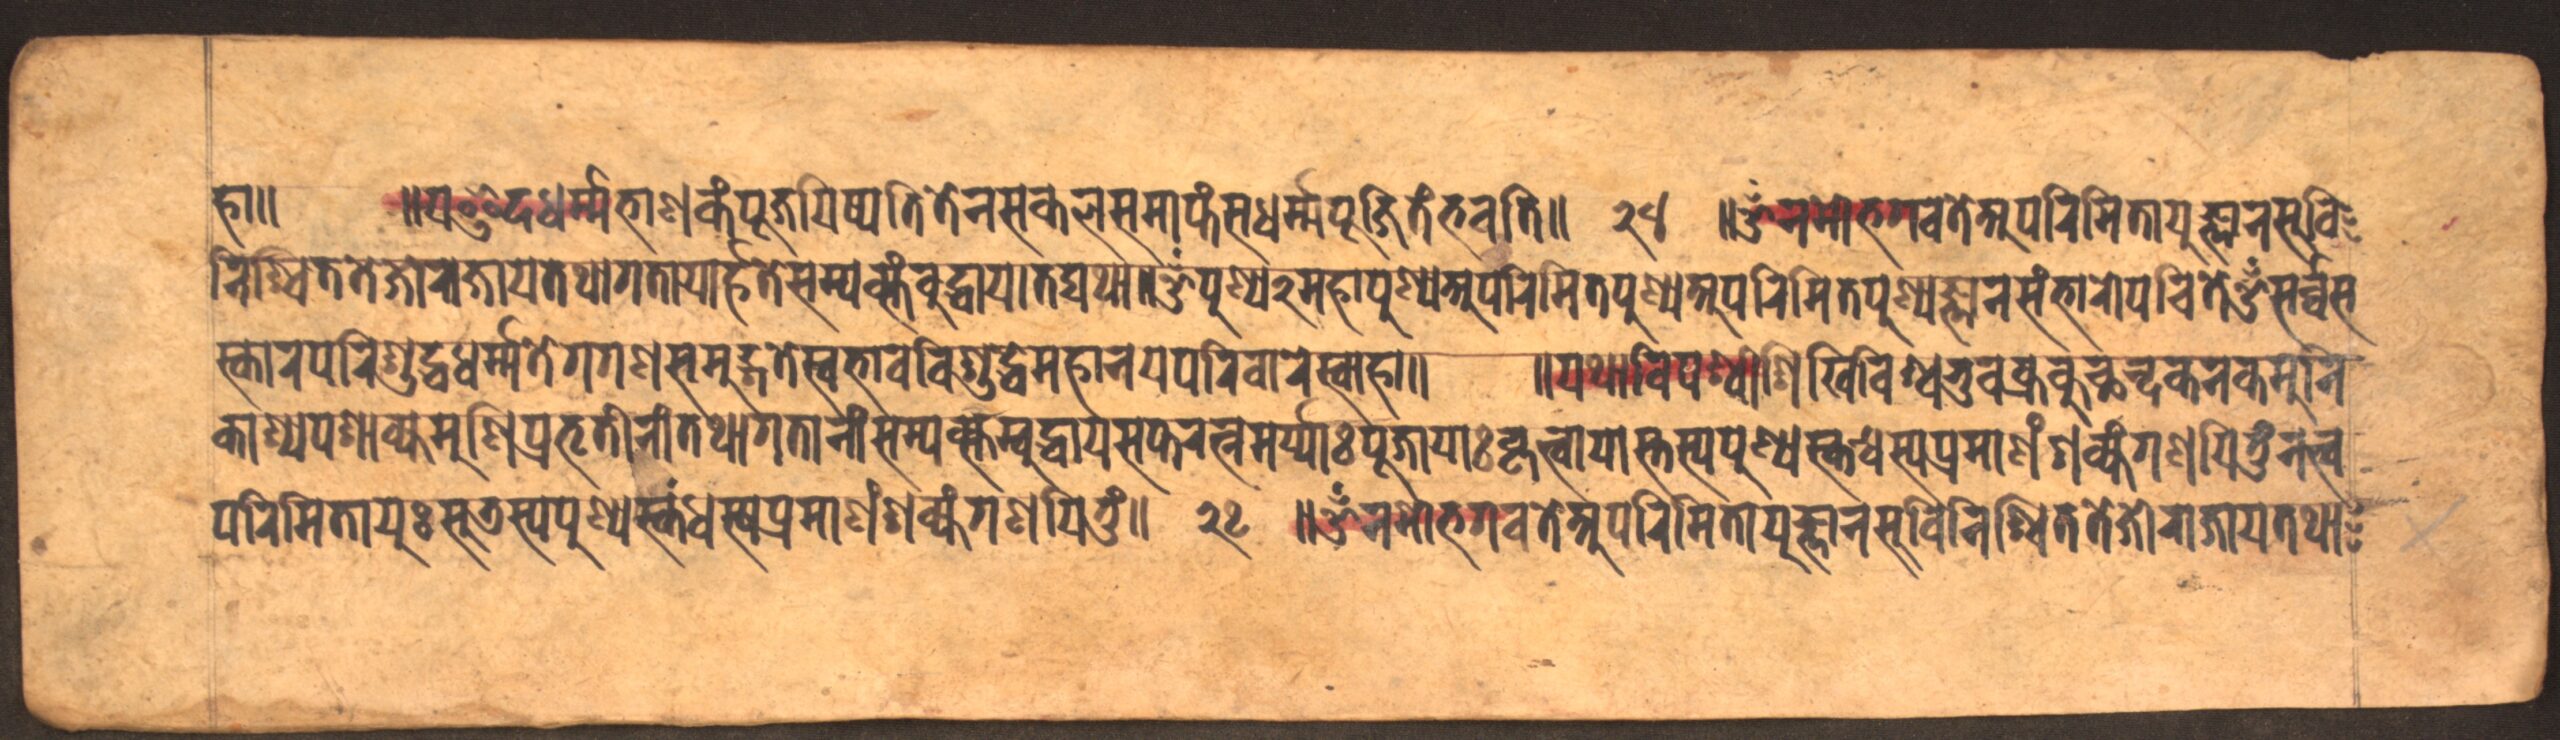 हा॥ ॥यइदंधर्म्मभाणकंपूजयिष्यतितेनसकलसमाप्तंसधर्म्मपूजितंभवति॥ २४ ॥ॐनमोभगवतेअपरिमितायुज्ञानसुवि
निश्चिततेजोराजायतथागतायार्हतेसम्यक्संबुद्धाया।तद्यथा॥ॐपुण्य२महापुण्यअपरिमितपुण्यअपरिमितपुण्यज्ञानसंभारोपचितेॐसर्व्वस
स्कारपरिशुद्धधर्म्मतेगगणसमुद्गतेस्वभावविशुद्धेमहानयपरिवारेस्वाहा॥ ॥यथाविपश्वीशिखिविश्वभुवक्रकुछन्दकनकमुनि
काश्यपशाक्यमुणिप्रभृतीनांतथागतानांसम्यक्सम्बुद्धायसप्तरत्नमर्य्याःपूजायाःकृत्वायास्तस्यपुण्यस्कन्धस्यप्रमाणंशक्यंगणयितुंनत्व
परिमितायुःसूत्रस्यपुण्यस्कंधस्यप्रमाणंशक्यंगणयितुं॥ २९ ॥ॐनमोभगवतेअपरिमितायुज्ञानसुविनिश्चिततेजोराजायतथा